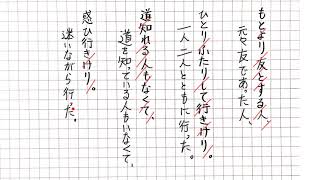 もとより友とする人、
元々友であった人、
ひとりふたりして行きけり。
一人二人とともに行った。
道知れる人もなくて、
道を知っている人もいなくて、
惑ひ行きけり。
迷いながら行った。